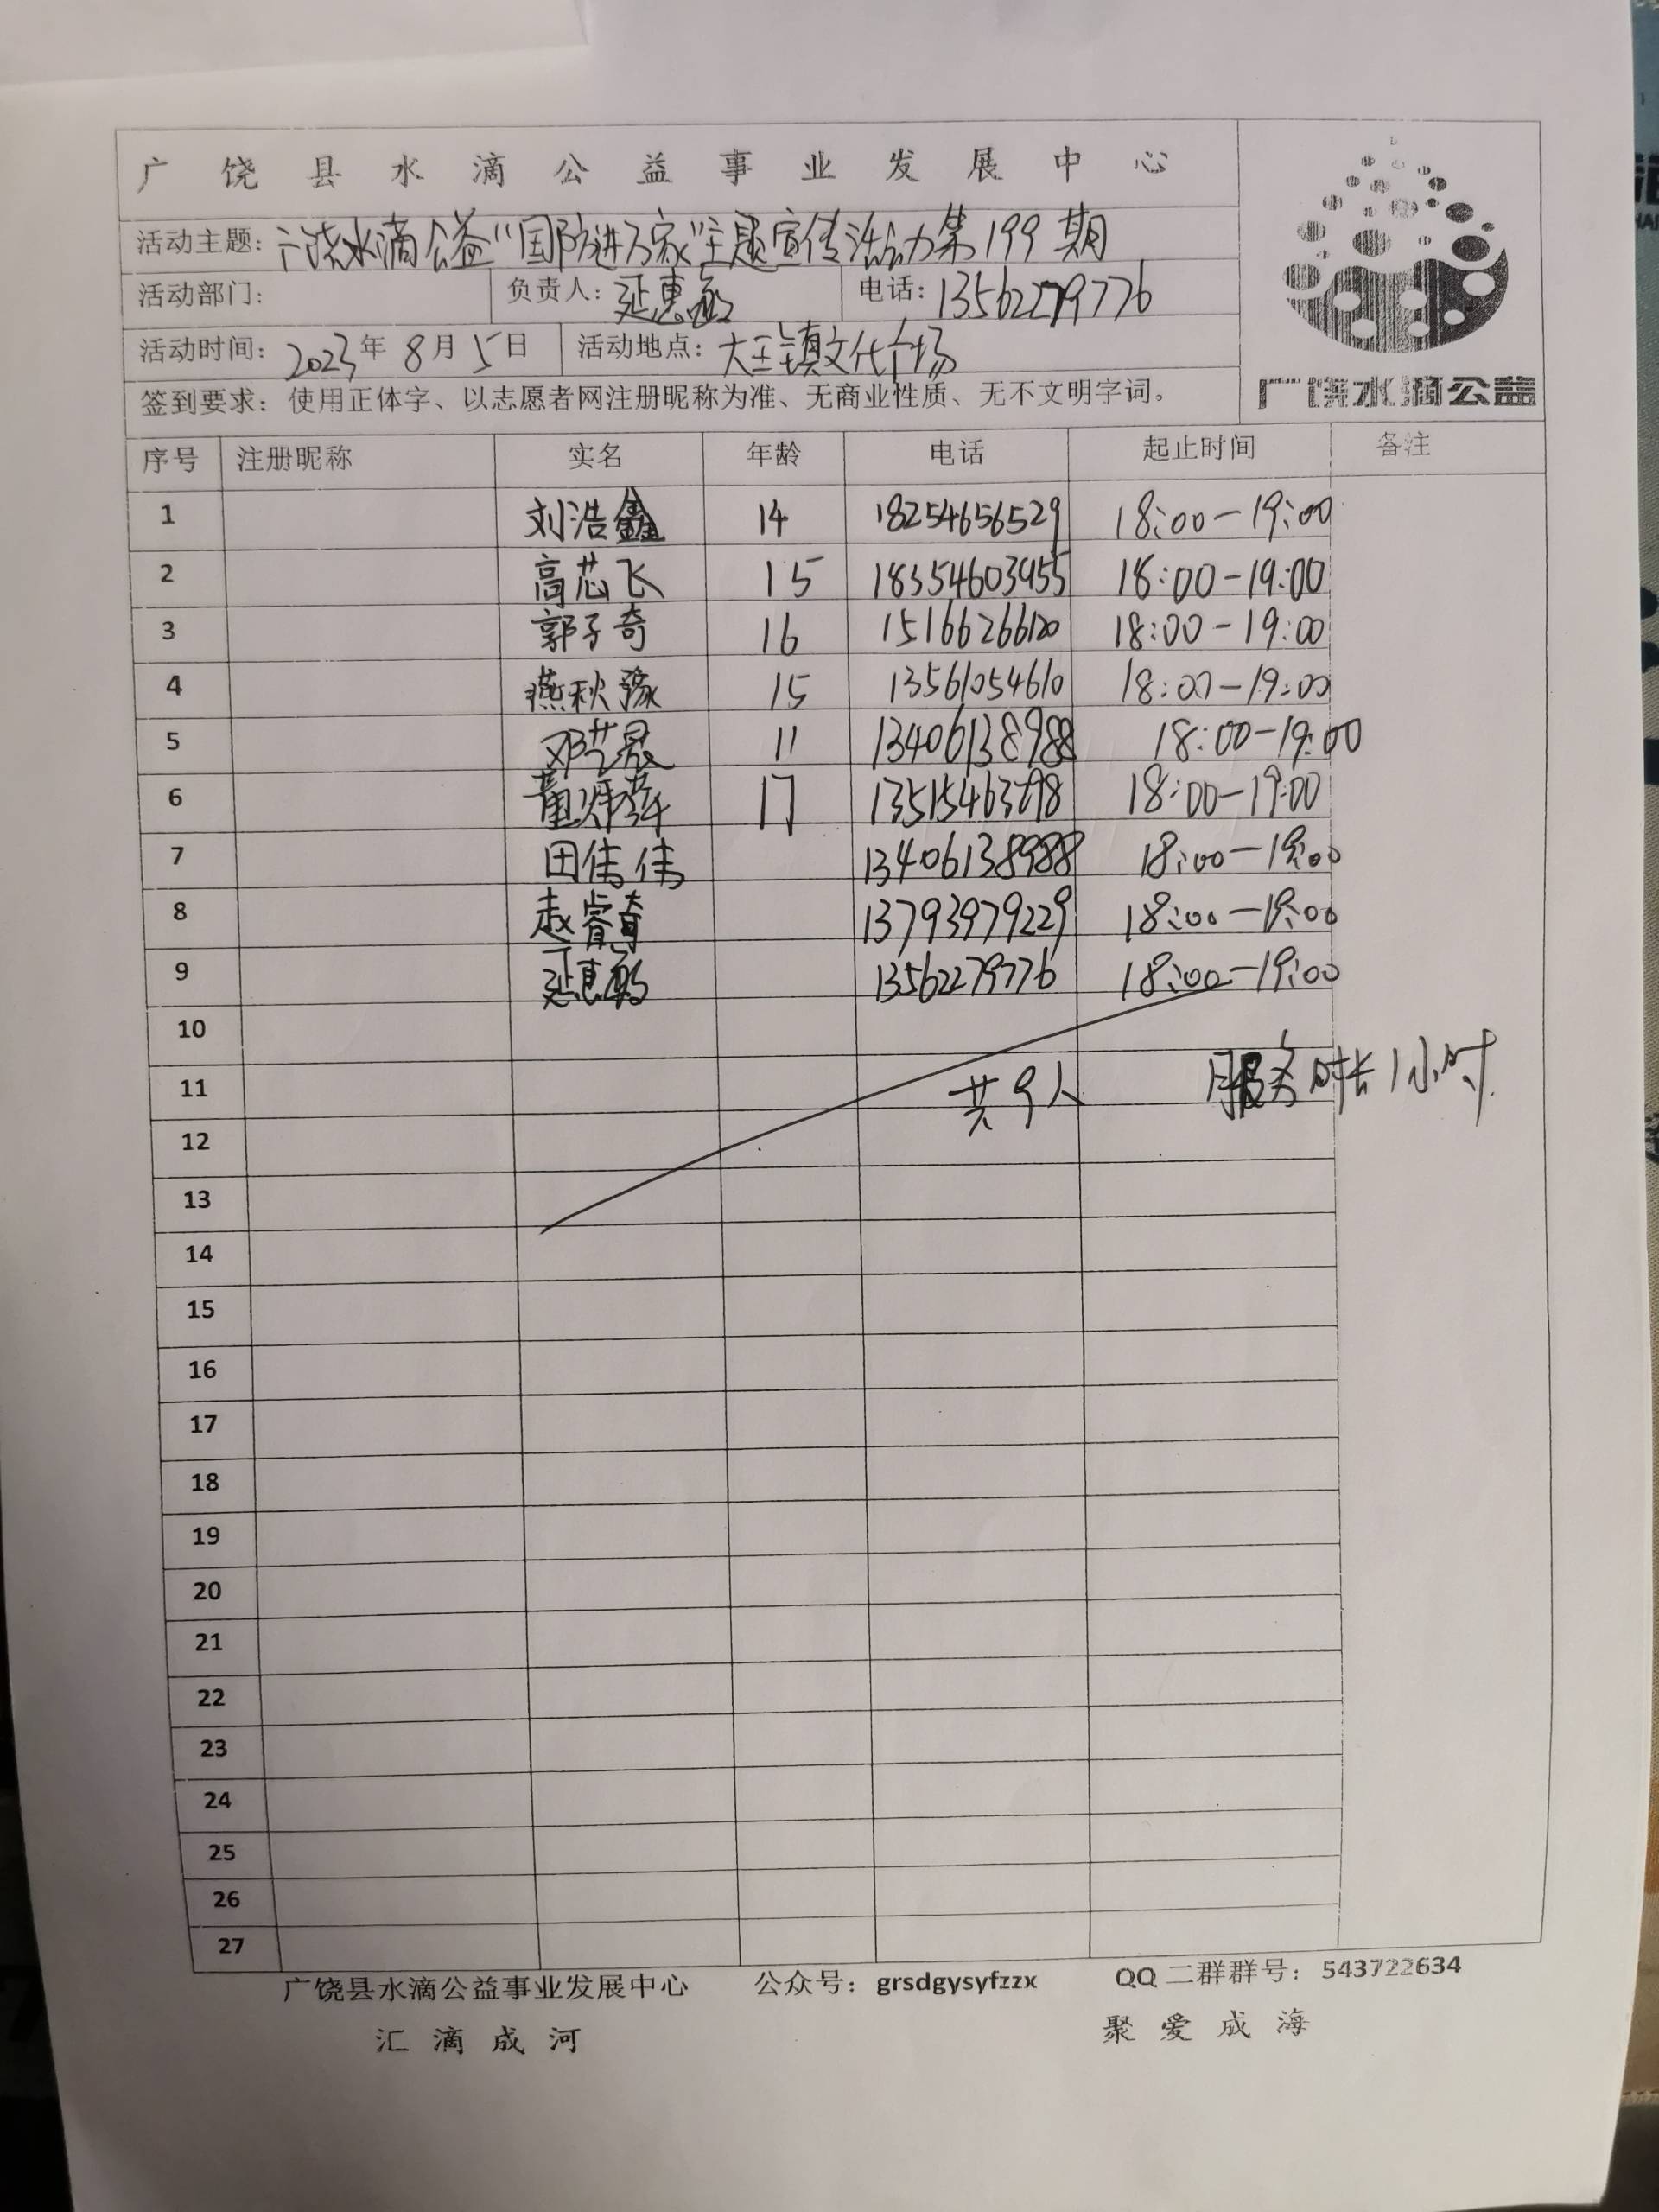 广饶县水滴公益事业发展中心
活动主题：广饶水滴公益"国防进万家"主题宣传活动第199期
活动部门： 负责人：延惠 电话：13562279776
活动时间：2023年8月5日 活动地点：大王镇文化广场
签到要求：使用正体字、以志愿者网注册昵称为准、无商业性质、无不文明字词。
广饶水滴公益
序号 注册昵称 实名 年龄 电话 起止时间 备注
1 刘浩鑫 14 18254656529 18:00-19:00
2 高芯飞 15 18354603955 18:00-19:00
3 郭子奇 16 15166266120 18:00-19:00
4 燕秋豫 15 13561054610 18:00-19:00
5 邓艺晟 11 13406138988 18:00-19:00
6 董 17 18:00-19:00
7 田伟伟 13406138988 18:00-19:00
8 赵睿奇 13793979229 18:00-19:00
9 延惠 13562279776 18:00-19:00
10
11 共9人 服务时长1小时
12
13
14
15
16
17
18
19
20
21
22
23
24
25
26
27
广饶县水滴公益事业发展中心 公众号：grsdgysyfzzx QQ二群群号：543722634
汇滴成河 聚爱成海